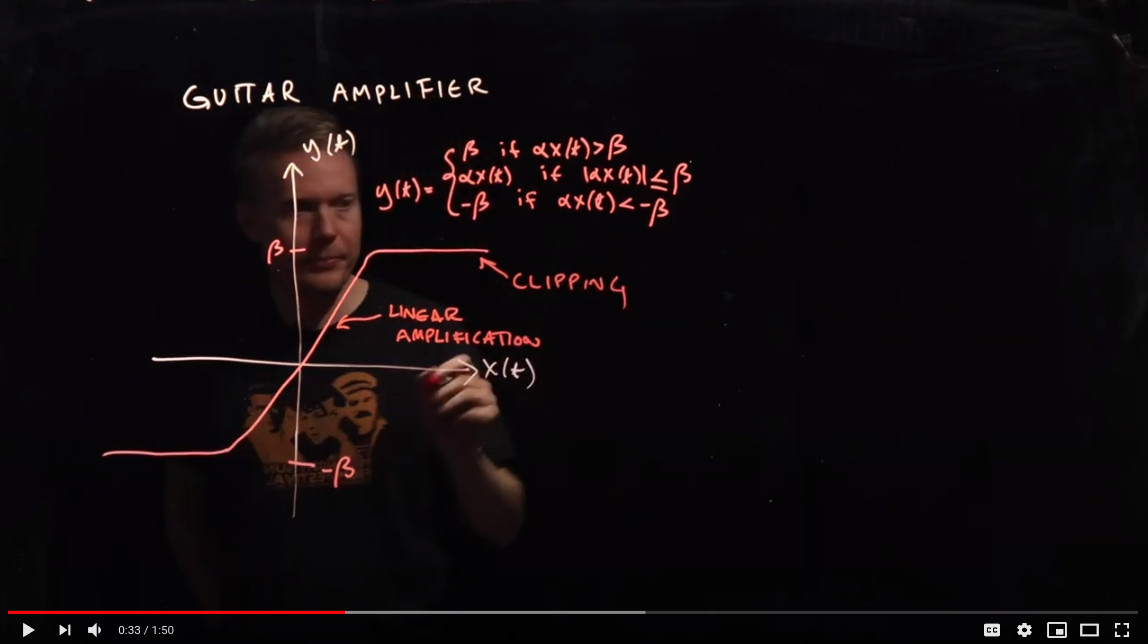 GUITAR AMPLIFIER
y(t)
β if αx(t) > β
y(t) = { αx(t) if |αx(t)| ≤ β
-β if αx(t) < -β
β
CLIPPING
LINEAR
AMPLIFICATION
x(t)
-β
0:33 / 1:50
CC